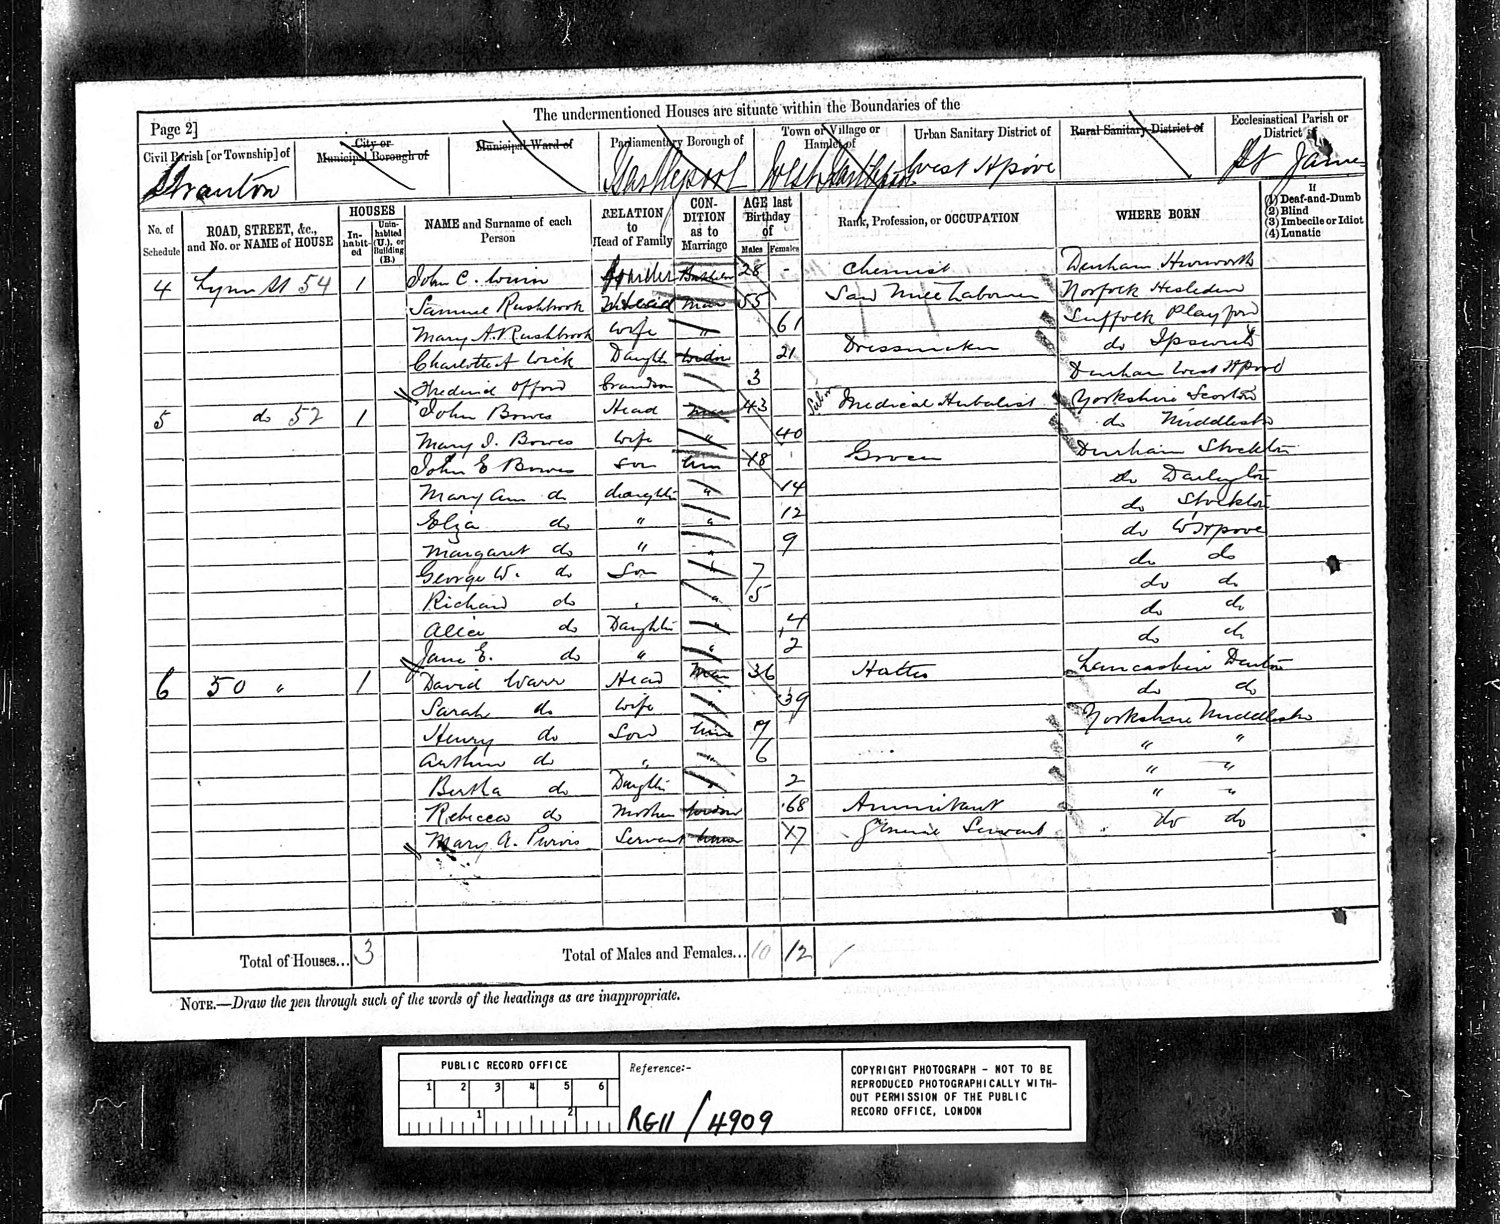 The undermentioned Houses are situate within the Boundaries of the
Page 2]
Civil Parish [or Township] of
City or Municipal Borough of
Municipal Ward of
Parliamentary Borough of
Town or Village or Hamlet of
Urban Sanitary District of
Rural Sanitary District of
Ecclesiastical Parish or District of
Stranton Hartlepool West Hartlepool West Hpool St James
No. of Schedule
ROAD, STREET, &c., and No. or NAME of HOUSE
HOUSES
In-habit-ed
Unin-habited (U.), or Building (B.)
NAME and Surname of each Person
RELATION to Head of Family
CON-DITION as to Marriage
AGE last Birthday of
Males Females
Rank, Profession, or OCCUPATION
WHERE BORN
If
(1) Deaf-and-Dumb
(2) Blind
(3) Imbecile or Idiot
(4) Lunatic
4 Lynn St 54 1 John C. 28 - Chemist Durham Hurworth
Samuel Rushbrook Head Mar 55 Saw Mill Labourer Norfolk
Mary A. Rushbrook Wife " 61 Suffolk Playford
Charlotte A Daughtr Widow 21 Dressmaker do Ipswich
Frederick Offord Grandson 3 Durham West Hpool
5 do 52 1 John Bowes Head Mar 43 Medical Herbalist Yorkshire Scorton
Mary I. Bowes Wife " 40 do Middlesbro
John E Bowes Son Unm 18 Grocer Durham Stockton
Mary Ann do daughter " 14 do Darlington
Eliza do " " 12 do Stockton
Margaret do " " 9 do W Hpool
George W. do Son " 7 do do
Richard do " " 5 do do
Alice do Daughter " 4 do do
Jane E. do " " 2 do do
6 50 " 1 David Warr Head Mar 36 Hatter Lancashire Denton
Sarah do Wife " 39 do do
Henry do Son Unm 7 Yorkshire Middlesbro
Arthur do " " 6 " "
Bertha do Daughter " 2 " "
Rebecca do Mother Widow 68 Annuitant " "
Mary A. Purvis Servant Unm 17 General Servant do do
Total of Houses... 3 Total of Males and Females... 10 12
NOTE.—Draw the pen through such of the words of the headings as are inappropriate.
PUBLIC RECORD OFFICE
1 2 3 4 5 6
1 2
Reference:-
RG11/4909
COPYRIGHT PHOTOGRAPH - NOT TO BE
REPRODUCED PHOTOGRAPHICALLY WITH-
OUT PERMISSION OF THE PUBLIC
RECORD OFFICE, LONDON